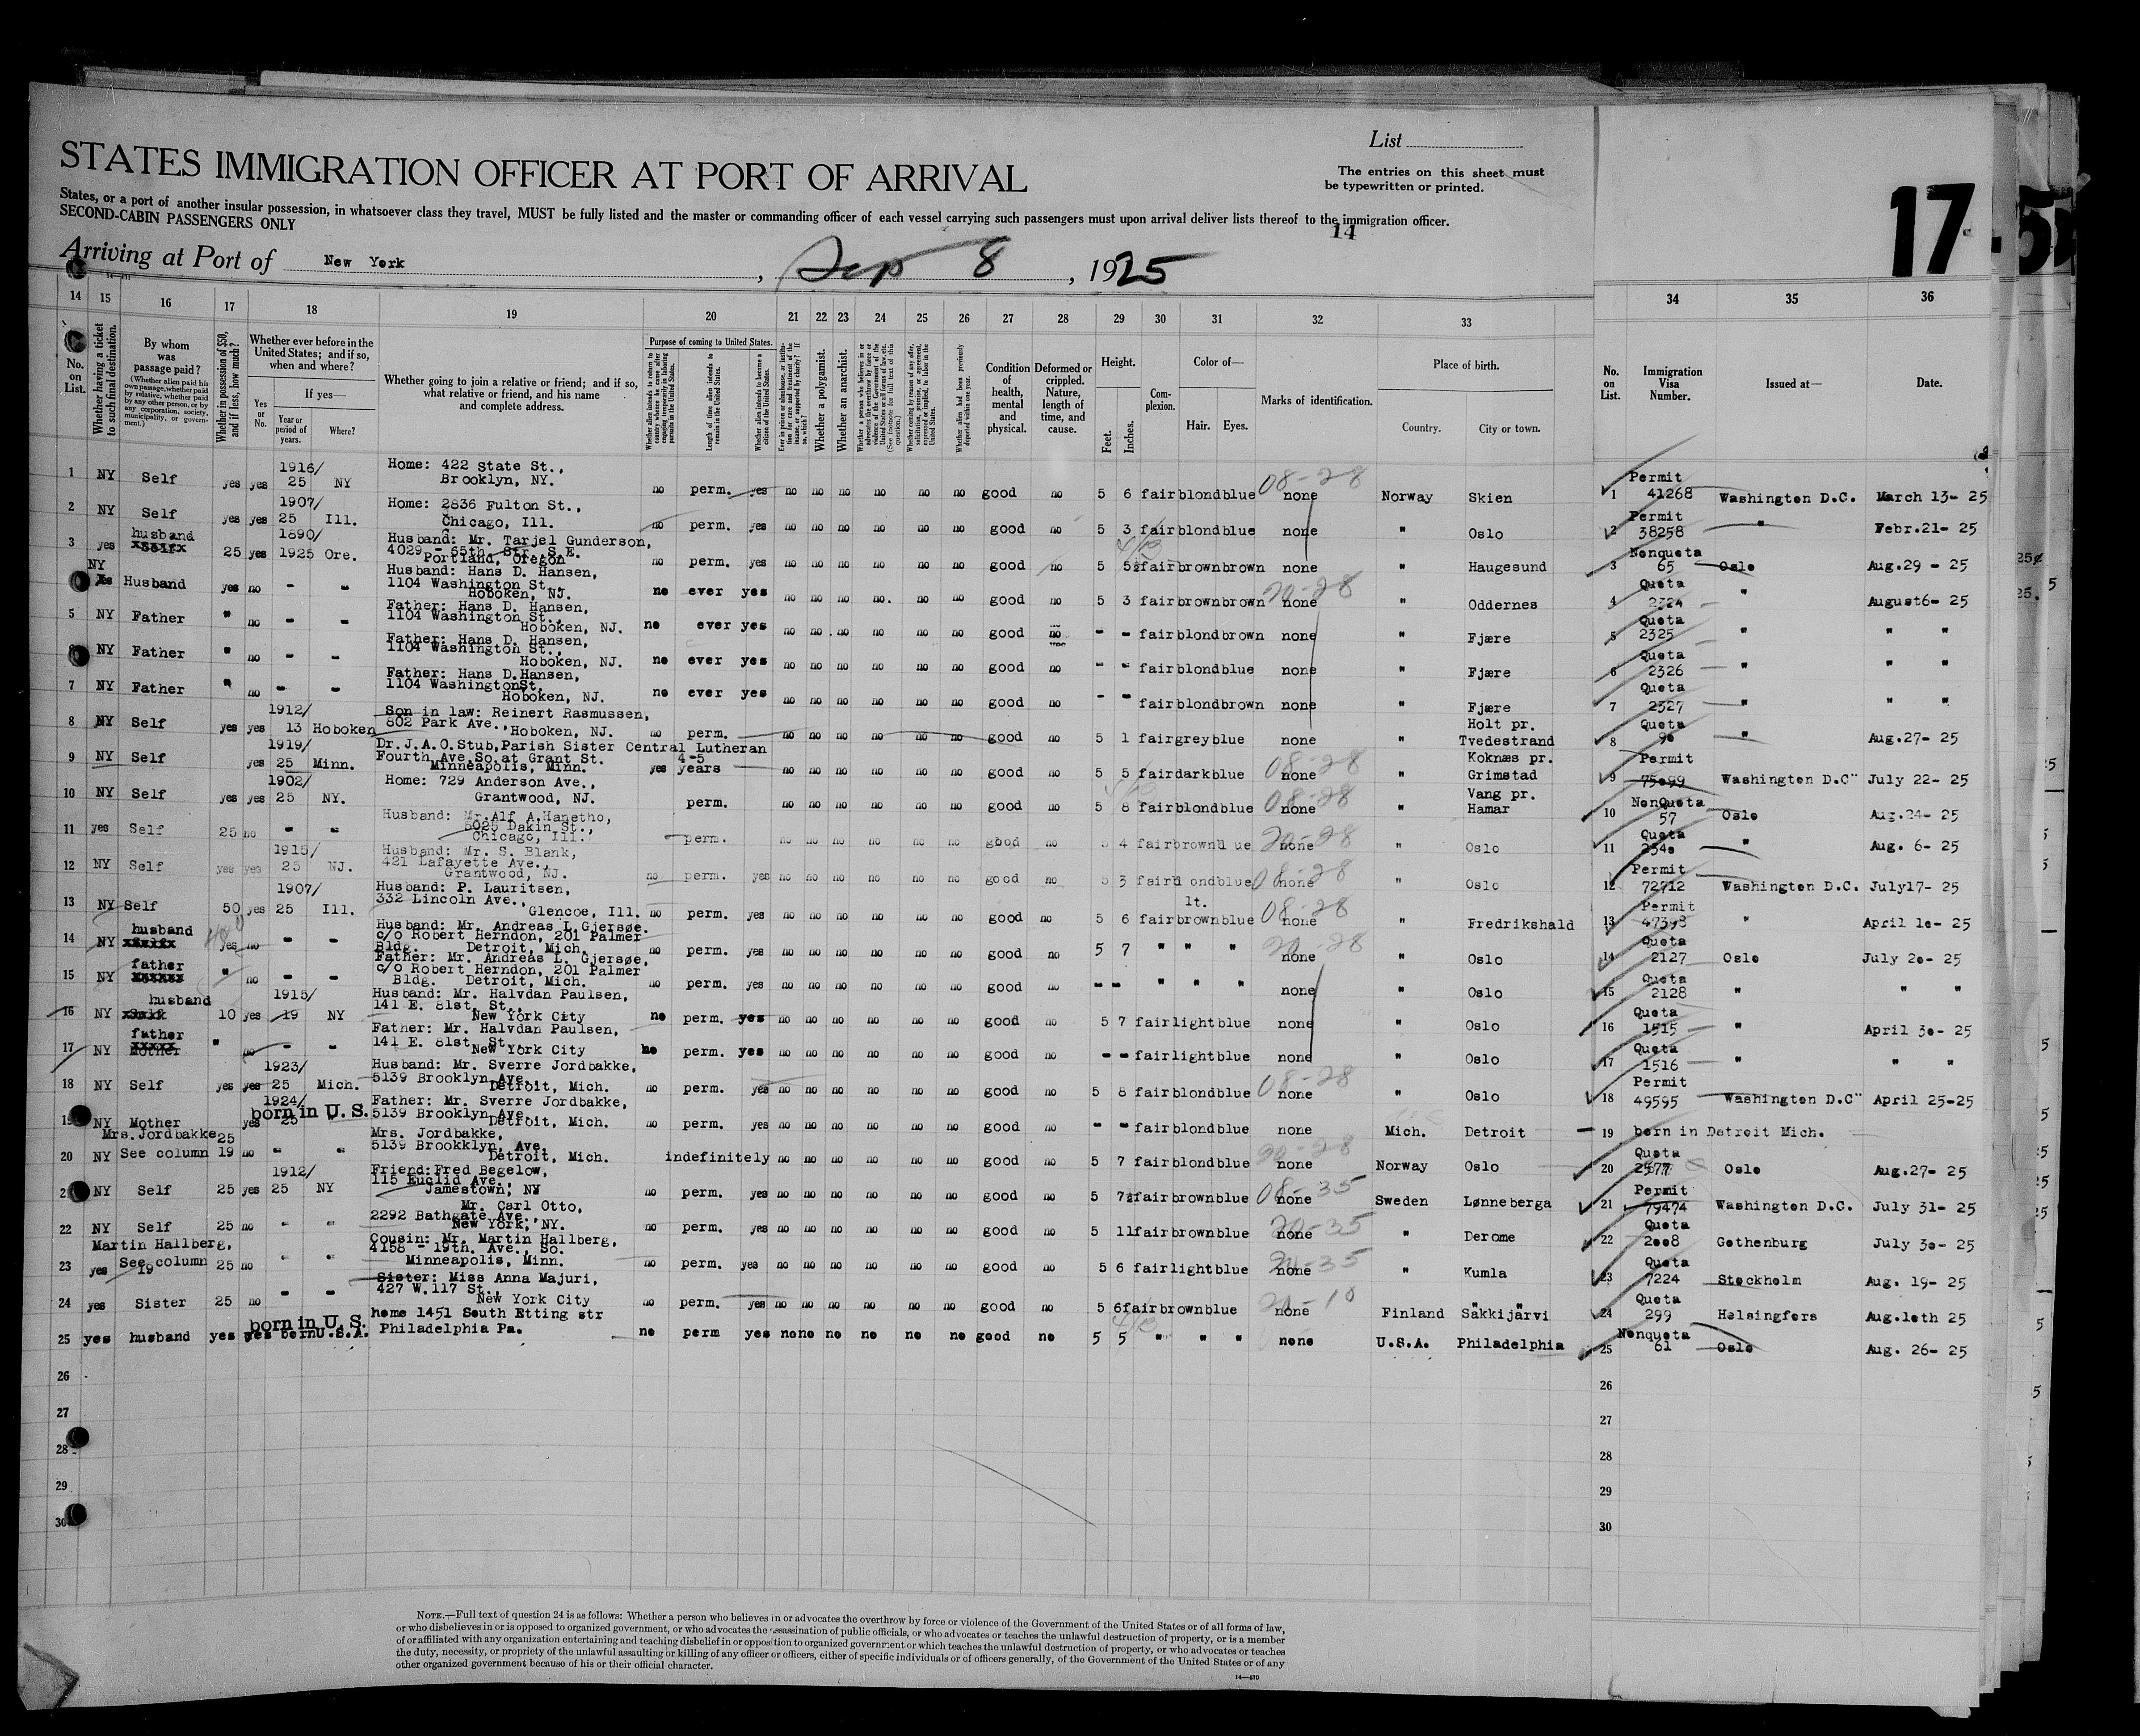 List
STATES IMMIGRATION OFFICER AT PORT OF ARRIVAL
The entries on this sheet must
be typewritten or printed.
States, or a port of another insular possession, in whatsoever class they travel, MUST be fully listed and the master or commanding officer of each vessel carrying such passengers must upon arrival deliver lists thereof to the immigration officer.
SECOND-CABIN PASSENGERS ONLY
14
17
Arriving at Port of New York, Sep 8, 1925
14 15 16 17 18 19 20 21 22 23 24 25 26 27 28 29 30 31 32 33 34 35 36
No. on List.
Whether having a ticket to such final destination.
By whom was passage paid?
(Whether alien paid his own passage, whether paid by relative, whether paid by any other person, or by any corporation, society, municipality, or government.)
Whether in possession of $50, and if less, how much?
Whether ever before in the United States; and if so, when and where?
If yes—
Yes or No.
Year or period of years.
Where?
Whether going to join a relative or friend; and if so, what relative or friend, and his name and complete address.
Purpose of coming to United States.
Length of time alien intends to remain in the United States.
Whether alien intends to become a citizen of the United States.
Whether a polygamist.
Whether an anarchist.
Condition of health, mental and physical.
Deformed or crippled. Nature, length of time, and cause.
Height.
Feet. Inches.
Complexion.
Color of—
Hair. Eyes.
Marks of identification.
Place of birth.
Country. City or town.
No. on List.
Immigration Visa Number.
Issued at—
Date.
1 NY Self yes yes 1916/25 NY Home: 422 State St., Brooklyn, NY. no perm. yes no no no no no no good no 5 6 fair blond blue 08-28 none Norway Skien 1 Permit 41268 Washington D.C. March 13- 25
2 NY Self yes yes 1907/25 Ill. Home: 2836 Fulton St., Chicago, Ill. no perm. yes no no no no no no good no 5 3 fair blond blue none " Oslo 2 Permit 38258 " Febr.21- 25
3 yes husband 25 yes 1890/1925 Ore. Husband: Mr. Tarjel Gunderson, 4029 - 65th. Str. S.E. Portland, Oregon no perm. yes no no no no no no good no 5 5½ fair brown brown none " Haugesund 3 Nonquota 65 Oslo Aug.29 - 25
NY Husband yes no - - Husband: Hans D. Hansen, 1104 Washington St., Hoboken, NJ. no ever yes no no no no. no no good no 5 3 fair brown brown 20-28 none " Oddernes 4 Quota 2324 " August6- 25
5 NY Father " no - - Father: Hans D. Hansen, 1104 Washington St., Hoboken, NJ. no ever yes no no no no no no good no - - fair blond brown none " Fjære 5 Quota 2325 " " "
NY Father " no - - Father: Hans D. Hansen, 1104 Washington St., Hoboken, NJ. no ever yes no no no no no no good no - - fair blond blue none " Fjære 6 Quota 2326 " " "
7 NY Father " no - - Father: Hans D.Hansen, 1104 WashingtonSt. Hoboken, NJ. no ever yes no no no no no no good no - - fair blond brown none " Fjære 7 Quota 2327 " " "
8 NY Self yes yes 1912/13 Hoboken Son in law: Reinert Rasmussen, 802 Park Ave., Hoboken, NJ. no perm. no no no no no no good no 5 1 fair grey blue none " Holt pr. Tvedestrand 8 Quota 90 " Aug.27- 25
9 NY Self yes 1919/25 Minn. Dr.J.A.O.Stub,Parish Sister Central Lutheran Fourth Ave.So.at Grant St. Minneapolis, Minn. yes 4-5 years no no no no no no good no 5 5 fair dark blue 08-28 none " Koknæs pr. Grimstad 9 Permit 75099 Washington D.C" July 22- 25
10 NY Self yes yes 1902/25 NY. Home: 729 Anderson Ave., Grantwood, NJ. perm. no no no no no no good no 5 8 fair blond blue 08-28 none " Vang pr. Hamar 10 NonQuota 57 Oslo Aug.24- 25
11 yes Self 25 no - - Husband: Mr.Alf A.Hanetho, 5025 Dakin St., Chicago, Ill. perm. no no no no no no good no 4 fair brown 20-28 none " Oslo 11 Quota 2340 " Aug. 6- 25
12 NY Self yes yes 1915/25 NJ. Husband: Mr. S. Blank, 421 Lafayette Ave., Grantwood, NJ. no perm. yes no no no no no no good no 5 3 fair blond blue 08-28 none " Oslo 12 Permit 72712 Washington D.C. July17- 25
13 NY Self 50 yes 1907/25 Ill. Husband: P. Lauritsen, 332 Lincoln Ave., Glencoe, Ill. no perm. yes no no no no no no good no 5 6 fair lt. brown blue 08-28 none " Fredrikshald 13 Permit 47398 " April 10- 25
14 NY husband yes no - - Husband: Mr. Andreas L.Gjersøe. c/o Robert Herndon, 201 Palmer Bldg. Detroit, Mich. no perm. yes no no no no no no good no 5 7 " " " 20-28 none " Oslo 14 Quota 2127 Oslo July 20- 25
15 NY father " no - - Father: Mr. Andreas L. Gjersøe, c/o Robert Herndon, 201 Palmer Bldg. Detroit, Mich. no perm. yes no no no no no no good no - - " " " none " Oslo 15 Quota 2128 " " "
16 NY husband 10 yes 1915/19 NY Husband: Mr. Halvdan Paulsen, 141 E. 81st. St., New York City no perm. yes no no no no no no good no 5 7 fair light blue none " Oslo 16 Quota 1515 " April 30- 25
17 NY father Mother " no - - Father: Mr. Halvdan Paulsen, 141 E. 81st. St., New York City no perm. yes no no no no no no good no - - fair light blue none " Oslo 17 Quota 1516 " " "
18 NY Self yes yes 1923/25 Mich. Husband: Mr. Sverre Jordbakke, 5139 Brooklyn Ave., Detroit, Mich. no perm. yes no no no no no no good no 5 8 fair blond blue 08-28 none " Oslo 18 Permit 49595 Washington D.C" April 25-25
19 NY Mother yes 1924/25 born in U. S. " Father: Mr. Sverre Jordbakke, 5139 Brooklyn Ave. Detroit, Mich. no perm. yes no no no no no no good no - - fair blond blue none Mich. Detroit 19 born in Detroit Mich.
20 NY Mrs.Jordbakke See column 19 25 no - - Mrs. Jordbakke, 5139 Brookklyn, Ave. Detroit, Mich. indefinitely no no no no no no good no 5 7 fair blond blue 20-28 none Norway Oslo 20 Quota 2577 Oslo Aug.27- 25
2 NY Self 25 yes 1912/25 NY Friend:Fred Begelow, 115 Euclid Ave., Jamestown, NY no perm. yes no no no no no no good no 5 7½ fair brown blue 08-35 none Sweden Lønneberga 21 Permit 79474 Washington D.C. July 31- 25
22 NY Self 25 no " " Mr. Carl Otto, 2292 Bathgate Ave., New York, NY. no perm. yes no no no no no no good no 5 11 fair brown blue 20-35 none " Derome 22 Quota 2008 Gothenburg July 30- 25
23 yes Martin Hallberg, See column 19 25 no " " Cousin: Mr. Martin Hallberg, 4158 - 19th. Ave., So. Minneapolis, Minn. no perm. yes no no no no no no good no 5 6 fair light blue 20-35 none " Kumla 23 Quota 7224 Stockholm Aug. 19- 25
24 yes Sister 25 no - - Sister: Miss Anna Majuri, 427 W.117 St., New York City no perm. yes no no no no no no good no 5 6 fair brown blue 20-10 none Finland Säkkijärvi 24 Quota 299 Helsingfors Aug.10th 25
25 yes husband yes yes born in U. S. bernU.S.A. home 1451 South Etting str Philadelphia Pa. no perm yes no no no no no no good no 5 5 " " " none U.S.A. Philadelphia 25 Nonquota 61 Oslo Aug. 26- 25
26 26
27 27
28 28
29 29
30 30
NOTE.—Full text of question 24 is as follows: Whether a person who believes in or advocates the overthrow by force or violence of the Government of the United States or of all forms of law,
or who disbelieves in or is opposed to organized government, or who advocates the assassination of public officials, or who advocates or teaches the unlawful destruction of property, or is a member
of or affiliated with any organization entertaining and teaching disbelief in or opposition to organized government or which teaches the unlawful destruction of property, or who advocates or teaches
the duty, necessity, or propriety of the unlawful assaulting or killing of any officer or officers, either of specific individuals or of officers generally, of the Government of the United States or of any
other organized government because of his or their official character.
14—430